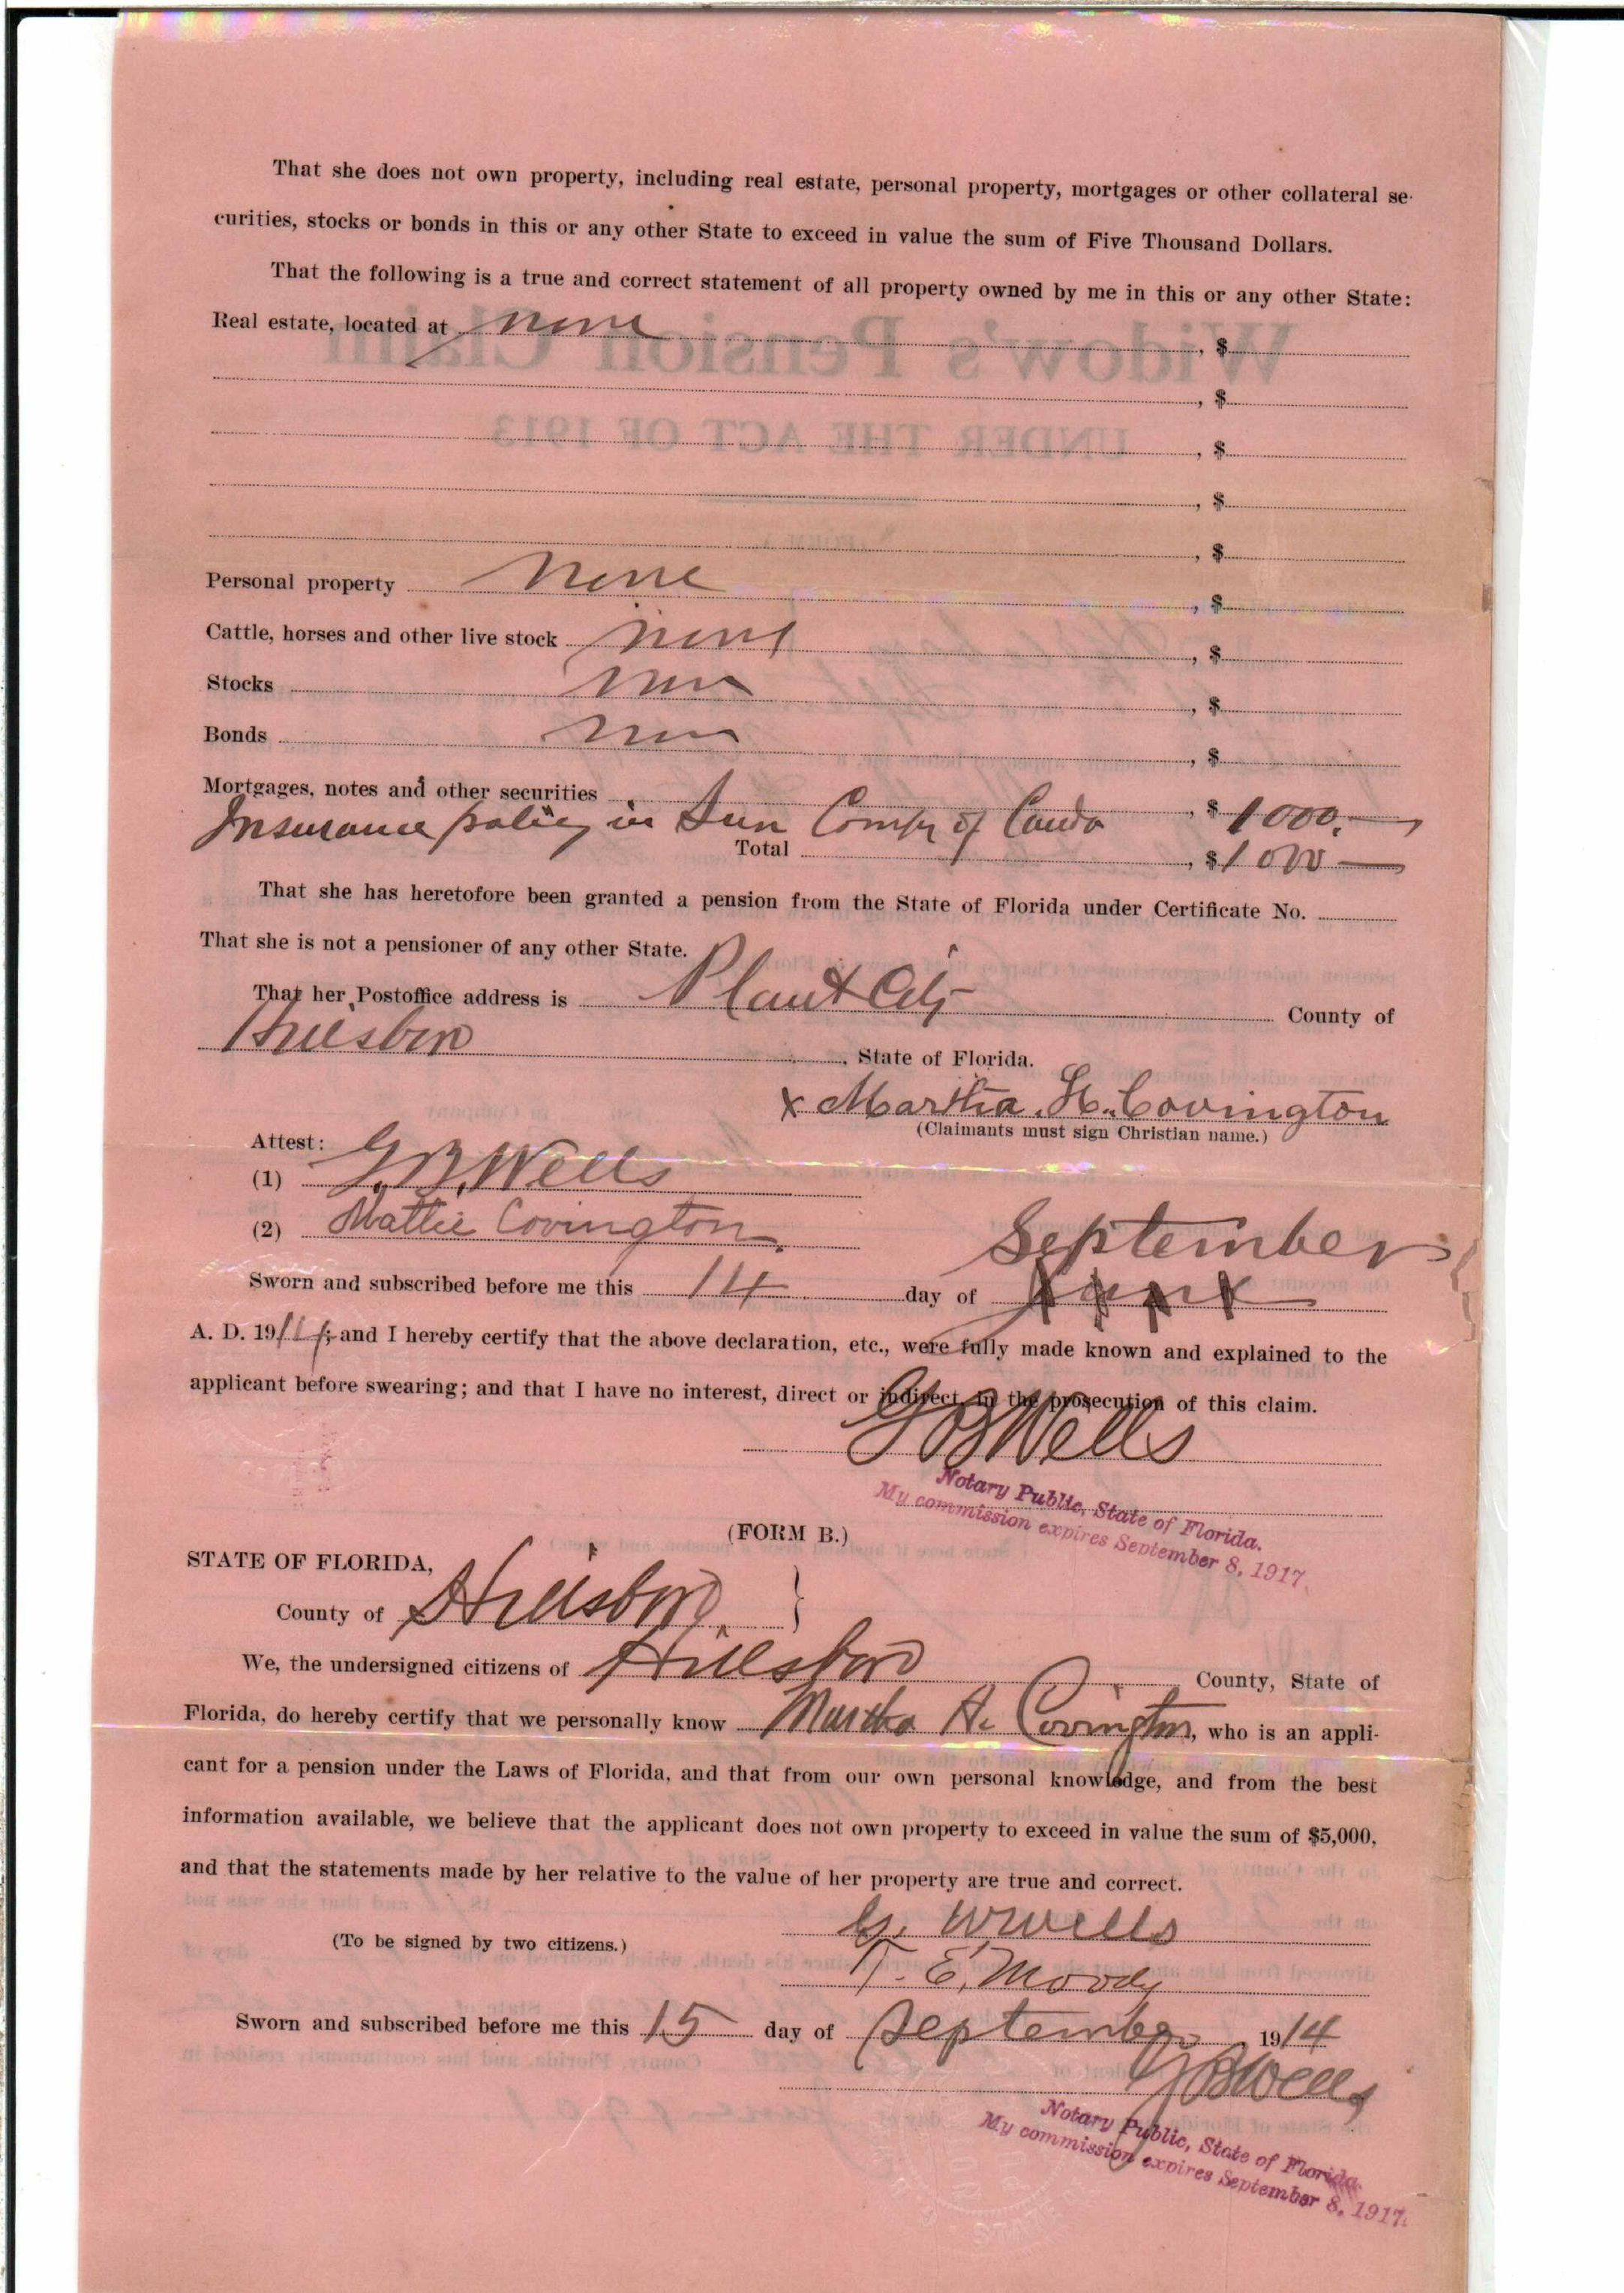 That she does not own property, including real estate, personal property, mortgages or other collateral se-
curities, stocks or bonds in this or any other State to exceed in value the sum of Five Thousand Dollars.
That the following is a true and correct statement of all property owned by me in this or any other State:
Real estate, located at none , $
, $
, $
, $
, $
Personal property none , $
Cattle, horses and other live stock none , $
Stocks none , $
Bonds none , $
Mortgages, notes and other securities , $ 1000.
Insurance policy in Sun Compy of
Total , $ 1000
That she has heretofore been granted a pension from the State of Florida under Certificate No.
That she is not a pensioner of any other State.
That her Postoffice address is Plant City County of
Hillsboro , State of Florida.
x Martha. H. Covington
(Claimants must sign Christian name.)
Attest:
(1) G. B. Wells
(2) Mattie Covington.
September
Sworn and subscribed before me this 14 day of
A. D. 1914; and I hereby certify that the above declaration, etc., were fully made known and explained to the
applicant before swearing; and that I have no interest, direct or indirect, in the prosecution of this claim.
G B Wells
Notary Public, State of Florida.
My commission expires September 8, 1917.
(FORM B.)
STATE OF FLORIDA,
County of Hillsboro }
We, the undersigned citizens of Hillsboro County, State of
Florida, do hereby certify that we personally know Martha H. Covington, who is an appli-
cant for a pension under the Laws of Florida, and that from our own personal knowledge, and from the best
information available, we believe that the applicant does not own property to exceed in value the sum of $5,000,
and that the statements made by her relative to the value of her property are true and correct.
G. W Wells
(To be signed by two citizens.)
T. E. Moody
Sworn and subscribed before me this 15 day of September 1914
G B Wells
Notary Public, State of Florida.
My commission expires September 8, 1917.